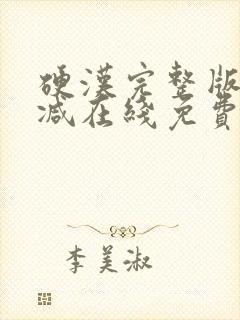 硬漢完整版
減在綫免費
李美淑